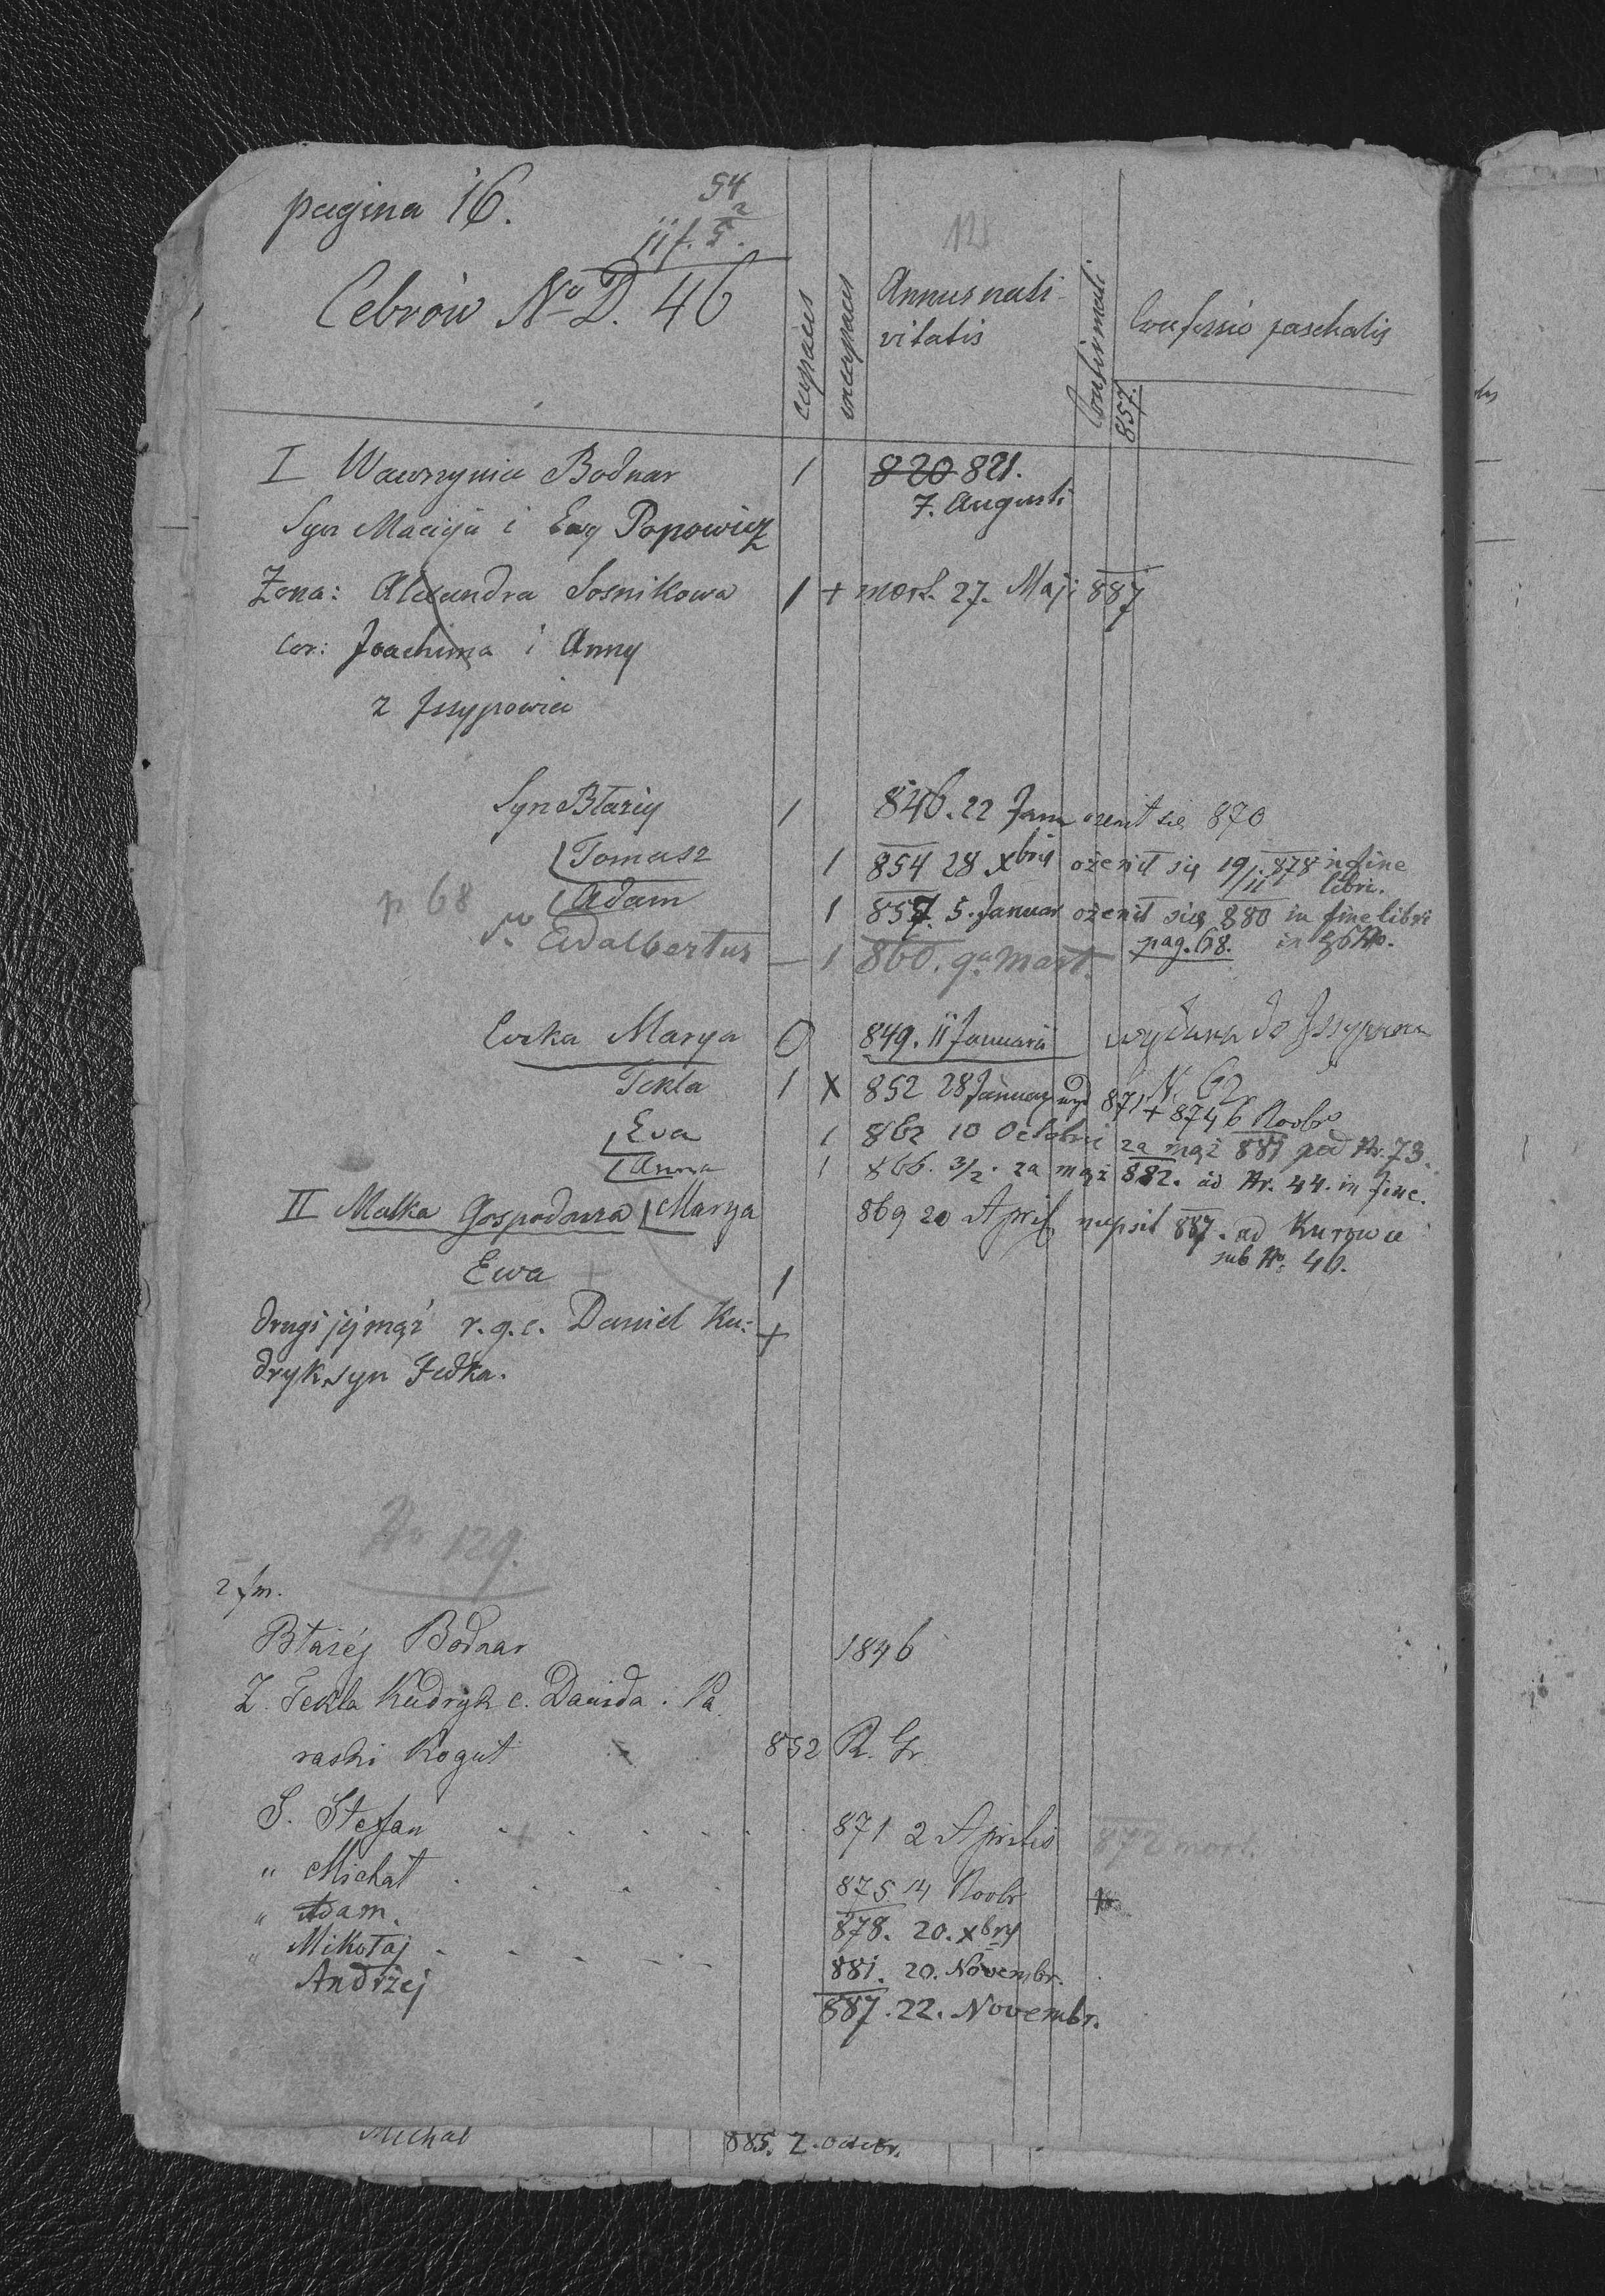 pagina 16.
54
128
Cebrów No D. 46
capaces
incapaces
Annus nati-
vitatis
Confirmati
857.
Confessio paschalis
I Wawrzyniec Bodnar 1 820 821.
7. Augusti
Syn Macieja i Ewy Popowicz
Żona: Alexandra Sosnikowa 1 + mort. 27. Maji 887
cor: Joachima i Anny
z Jssypowiec
Syn Błażej 1 846. 22 Janu ożenił się 870
Tomasz 1 854 28 Xbris ożenił się 19/11 878 in fine
libri.
p 68
Adam 1 857. 5. Januar ożenił się 880 in fine libri
pag. 68.
Adalbertus — 1 860. 9a Mart.
Corka Marya 0 849. 11 Januarii wydana do Jssypowa
N. 62
Tekla 1 X 852 28 Januar wyd 871 + 874 6 Novbr.
Eva 1 862 10 Octobris za mąż 881 pod Nr. 73.
Anna 1 866. 3/2. za mąż 882. ad Nr. 44. in fine.
II Matka Gospodarza Marya 869 20 April nupsit 887. ad Kurowce
sub No. 46.
Ewa 1
drugi jéj mąż r. g. c. Daniel Ku- +
dryk, syn Fedka.
No 129.
2 fm.
Błażéj Bodnar 1846
Ż. Tekla Kudryk c. Dawida. Pa
raski Kogut 852 R. Gr.
S. Stefan 871 2 Aprilis 872 mort.
" Michał 875 14 Novbr
" Adam. 878. 20. Xbris
" Mikołaj 881. 20. Novembr.
Andrzej 887. 22. Novembr.
Michał 885. 2. Octobr.